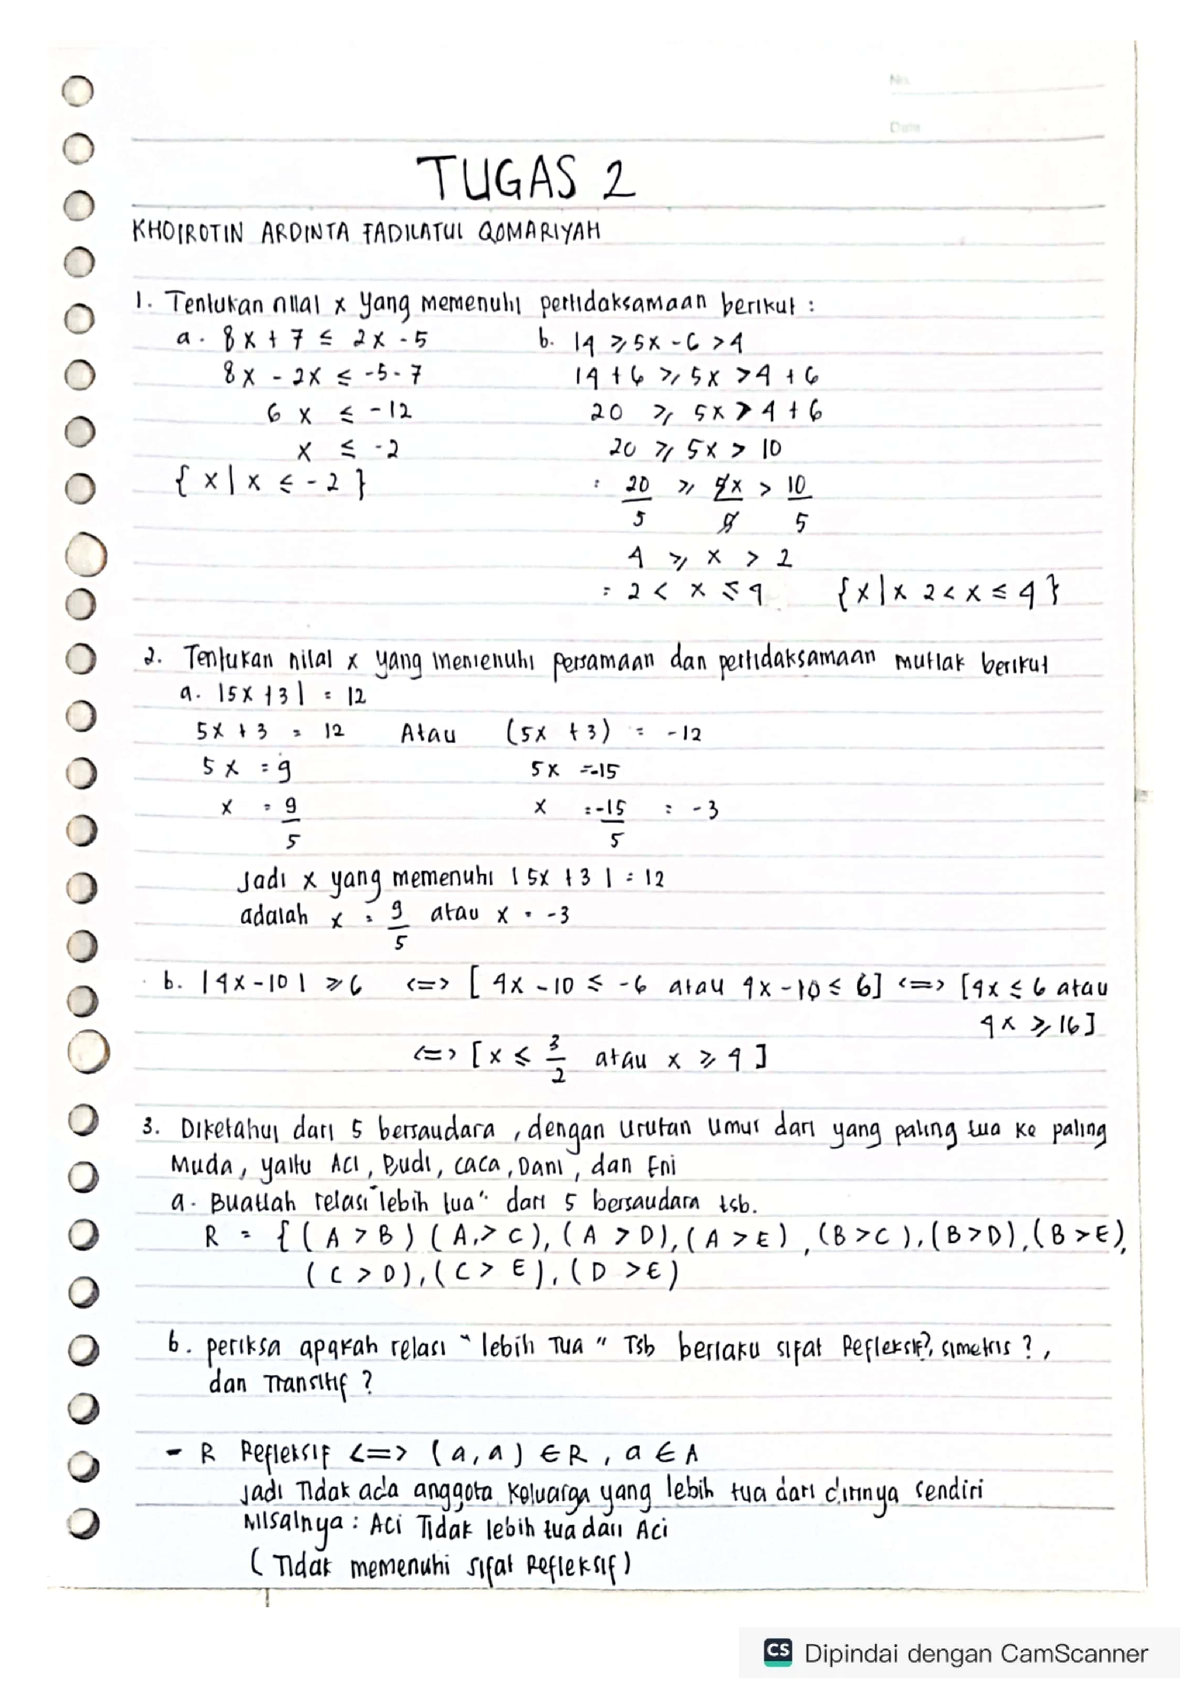 No.
Date
TUGAS 2
KHOIROTIN ARDINTA FADILATUL QOMARIYAH
1. Tentukan nilai x yang memenuhi pertidaksamaan berikut :
a. 8x + 7 ≤ 2x - 5 b. 14 ≥ 5x - 6 > 4
8x - 2x ≤ -5 - 7 14 + 6 ≥ 5x > 4 + 6
6 x ≤ -12 20 ≥ 5x > 4 + 6
x ≤ -2 20 ≥ 5x > 10
{ x | x ≤ -2 } : 20/5 ≥ 5x/5 > 10/5
4 ≥ x > 2
= 2 < x ≤ 4 { x | x 2 < x ≤ 4 }
2. Tentukan nilai x yang memenuhi persamaan dan pertidaksamaan mutlak berikut
a. |5x + 3| = 12
5x + 3 = 12 Atau (5x + 3) = -12
5x = 9 5x = -15
x = 9/5 x = -15/5 = -3
Jadi x yang memenuhi | 5x + 3 | = 12
adalah x = 9/5 atau x = -3
b. |4x - 10| ≥ 6 <=> [ 4x - 10 ≤ -6 atau 4x - 10 ≤ 6] <=> [4x ≤ 6 atau
4x ≥ 16]
<=> [ x ≤ 3/2 atau x ≥ 4 ]
3. Diketahui dari 5 bersaudara , dengan urutan umur dari yang paling tua ke paling
Muda, yaitu Aci, Budi, caca, Dani, dan Eni
a. Buatlah relasi "lebih tua" dari 5 bersaudara tsb.
R = { ( A > B ) ( A, > C ), ( A > D), ( A > E ) , (B > C ), ( B > D), ( B > E),
( C > D), ( C > E ), ( D > E )
b. periksa apakah relasi " lebih Tua " Tsb berlaku sifat Refleksif?, simetris ? ,
dan Transitif ?
- R Refleksif <=> (a, a) ∈ R , a ∈ A
Jadi Tidak ada anggota keluarga yang lebih tua dari dirinya sendiri
Misalnya : Aci Tidak lebih tua dari Aci
( Tidak memenuhi sifat Refleksif)
CS Dipindai dengan CamScanner